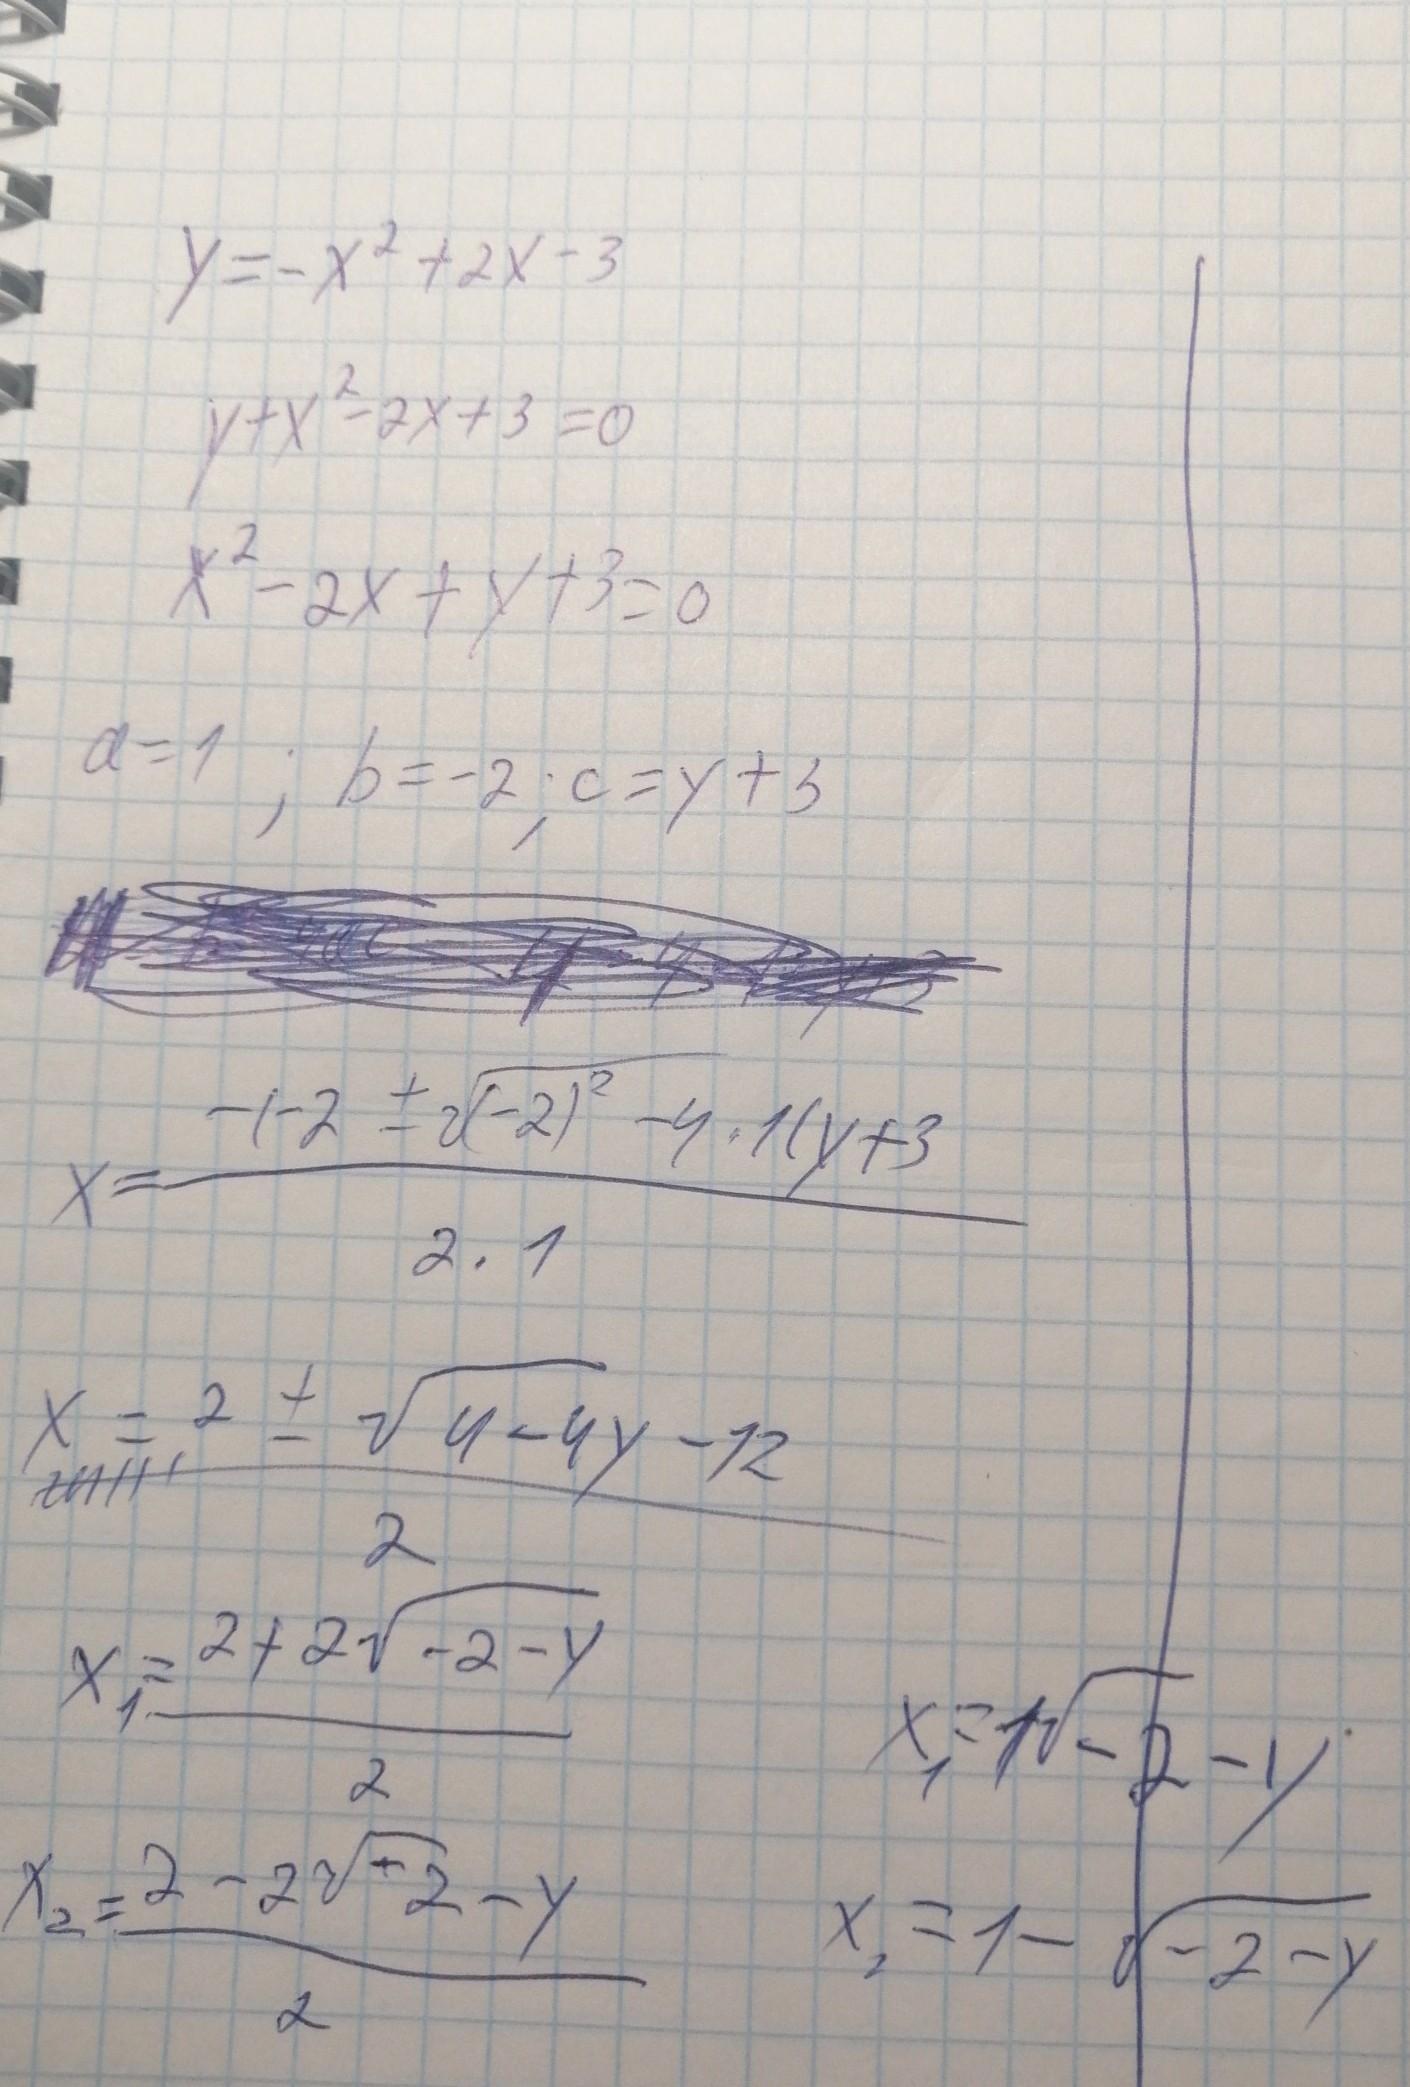 y=-x²+2x-3
y+x²-2x+3=0
x²-2x+y+3=0
a=1 ; b=-2 ; c=y+3
-(-2 ± √(-2)² -4·1(y+3
x=
2·1
x = 2 ± √4-4y-12
2
x₁= 2+2√-2-y
2
x₂= 2-2√-2-y
2
x₁=1√-2-y
x₂=1-√-2-y